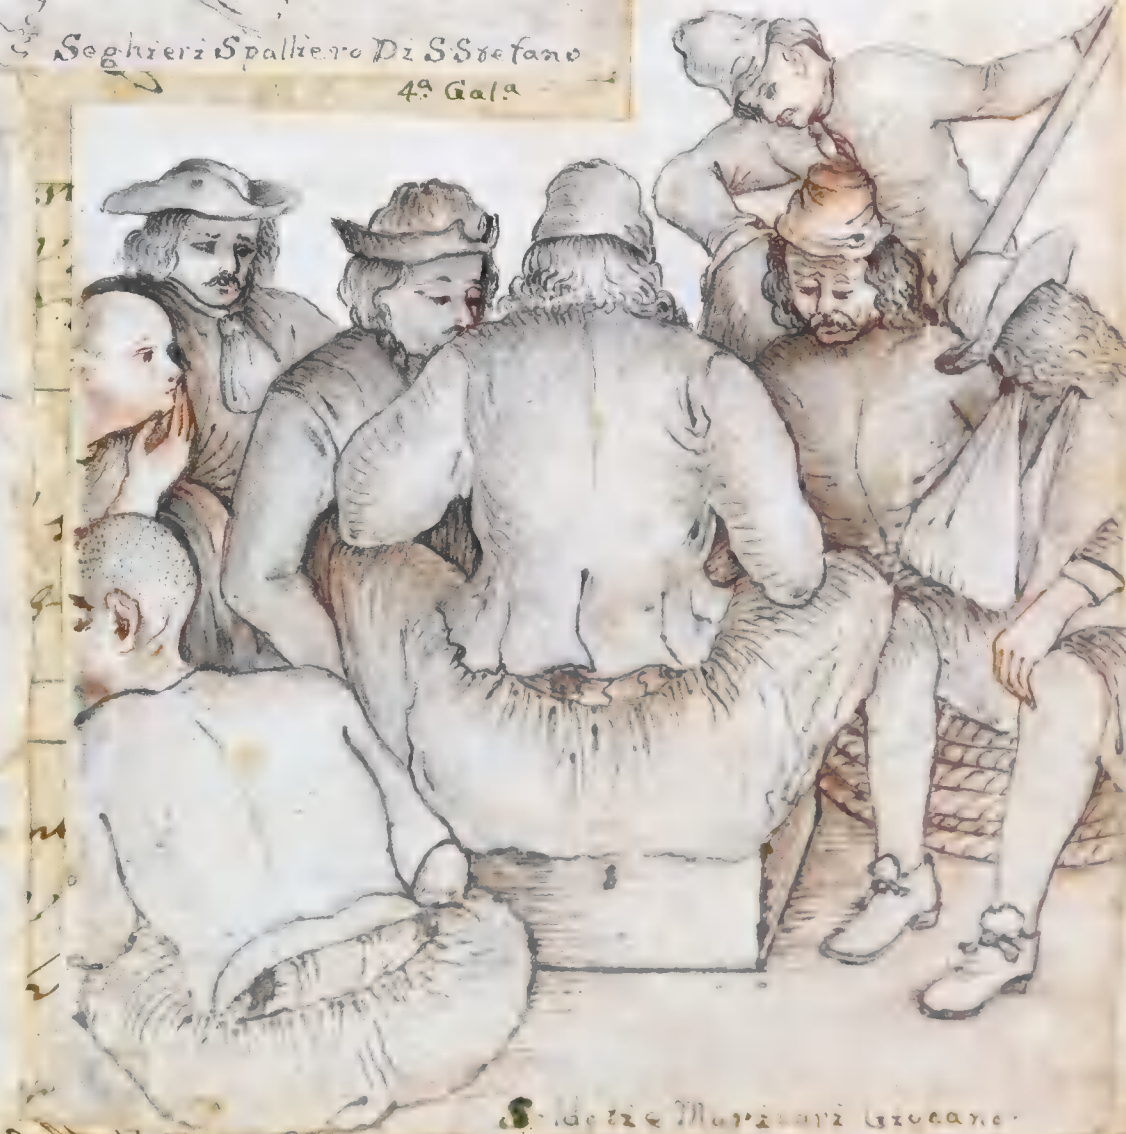 Seghieri Spalliero Di S Stefano
4ª Galª
Soldati e Marinari Giocano